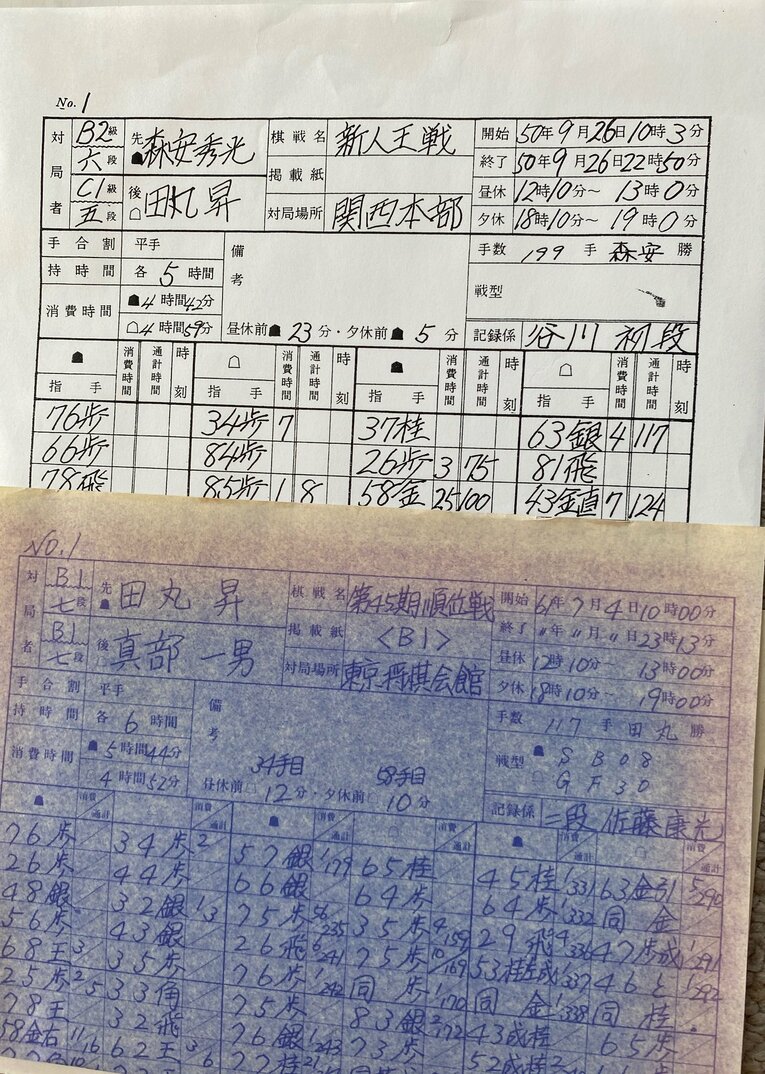 No.1
対局者 B2級 六段 先 森安秀光 棋戦名 新人王戦 開始 50年9月26日10時3分
掲載紙 終了 50年9月26日22時50分
C1級 五段 後 田丸昇 対局場所 関西本部 昼休 12時10分〜13時0分
夕休 18時10分〜19時0分
手合割 平手 備考 手数 199手 森安勝
持時間 各5時間 戦型
消費時間 4時間42分
4時間59分 昼休前 23分・夕休前 5分 記録係 谷川初段
指手 消費時間 通計時間 時刻 指手 消費時間 通計時間 時刻 指手 消費時間 通計時間 時刻 指手 消費時間 通計時間 時刻
76歩 34歩 7 37桂 63銀 4 117
66歩 84歩 26歩 3 75 81飛
78飛 85歩 1 8 58金 25 100 43金直 7 124
NO.1
対局者 B1 七段 先 田丸昇 棋戦名 第45期順位戦 開始 61年7月4日10時00分
掲載紙 <B1> 終了 〃年〃月〃日23時13分
B1 七段 後 真部一男 対局場所 東京将棋会館 昼休 12時10分〜13時00分
夕休 18時10分〜19時00分
手合割 平手 備考 手数 117手 田丸勝
持時間 各6時間 戦型 SB08
消費時間 5時間44分 GF30
4時間52分 34手目 58手目
昼休前 12分・夕休前 10分 記録係 二段 佐藤康光
消費 通計 消費 通計 消費 通計 消費 通計 消費 通計 消費 通計
76歩 34歩 2 57銀 1 179 65桂 45桂 1 331 63金引 5 290
26歩 44歩 66銀 64歩 64歩 1 332 同金
48銀 32銀 1 3 75歩 56 235 35歩 4 159 29飛 4 336 47歩成 1 291
56歩 43銀 26飛 6 241 75歩 10 169 53桂成 1 337 46と 1 292
68王 3 35歩 76歩 1 242 同歩 1 170 同金 1 338 同桂
25歩 2 5 33角 75歩 83銀 2 172 43成桂 65歩
78王 32飛 76銀 1 243 73歩
58金右 11 16 62王 3 6 77桂 52成桂